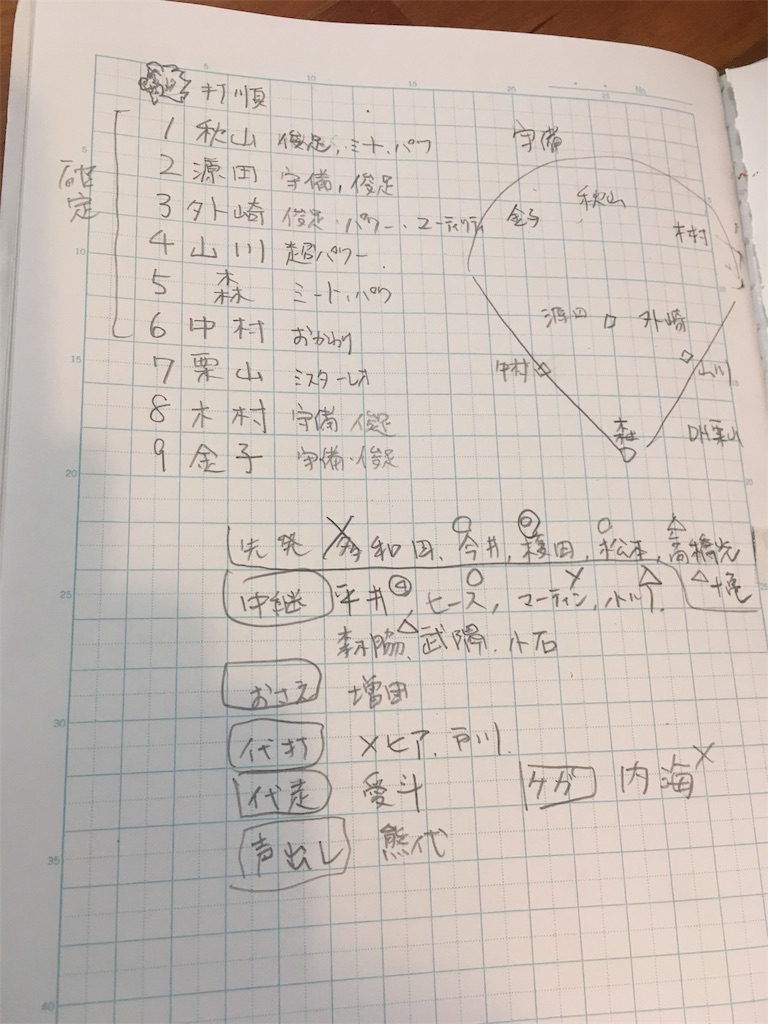 打順
確定
1 秋山 俊足、ミート、パワ
2 源田 守備、俊足
3 外崎 俊足・パワー・ユーティリティ
4 山川 超パワー
5 森 ミート、パワ
6 中村 おかわり
7 栗山 ミスターレオ
8 木村 守備 俊足
9 金子 守備・俊足
守備
秋山
金子
木村
源田 外崎
中村 山川
森 DH栗山
先発 ×多和田、○今井、◎榎田、○松本、△高橋光
△十亀
中継 平井④、○ヒース、×マーティン、△小川、
森脇、△武隈、小石
おさえ 増田
代打 メヒア、戸川、
代走 愛斗 ケガ 内海×
声出し 熊代
5
10
15
20
25
5
10
15
20
25
30
35
40